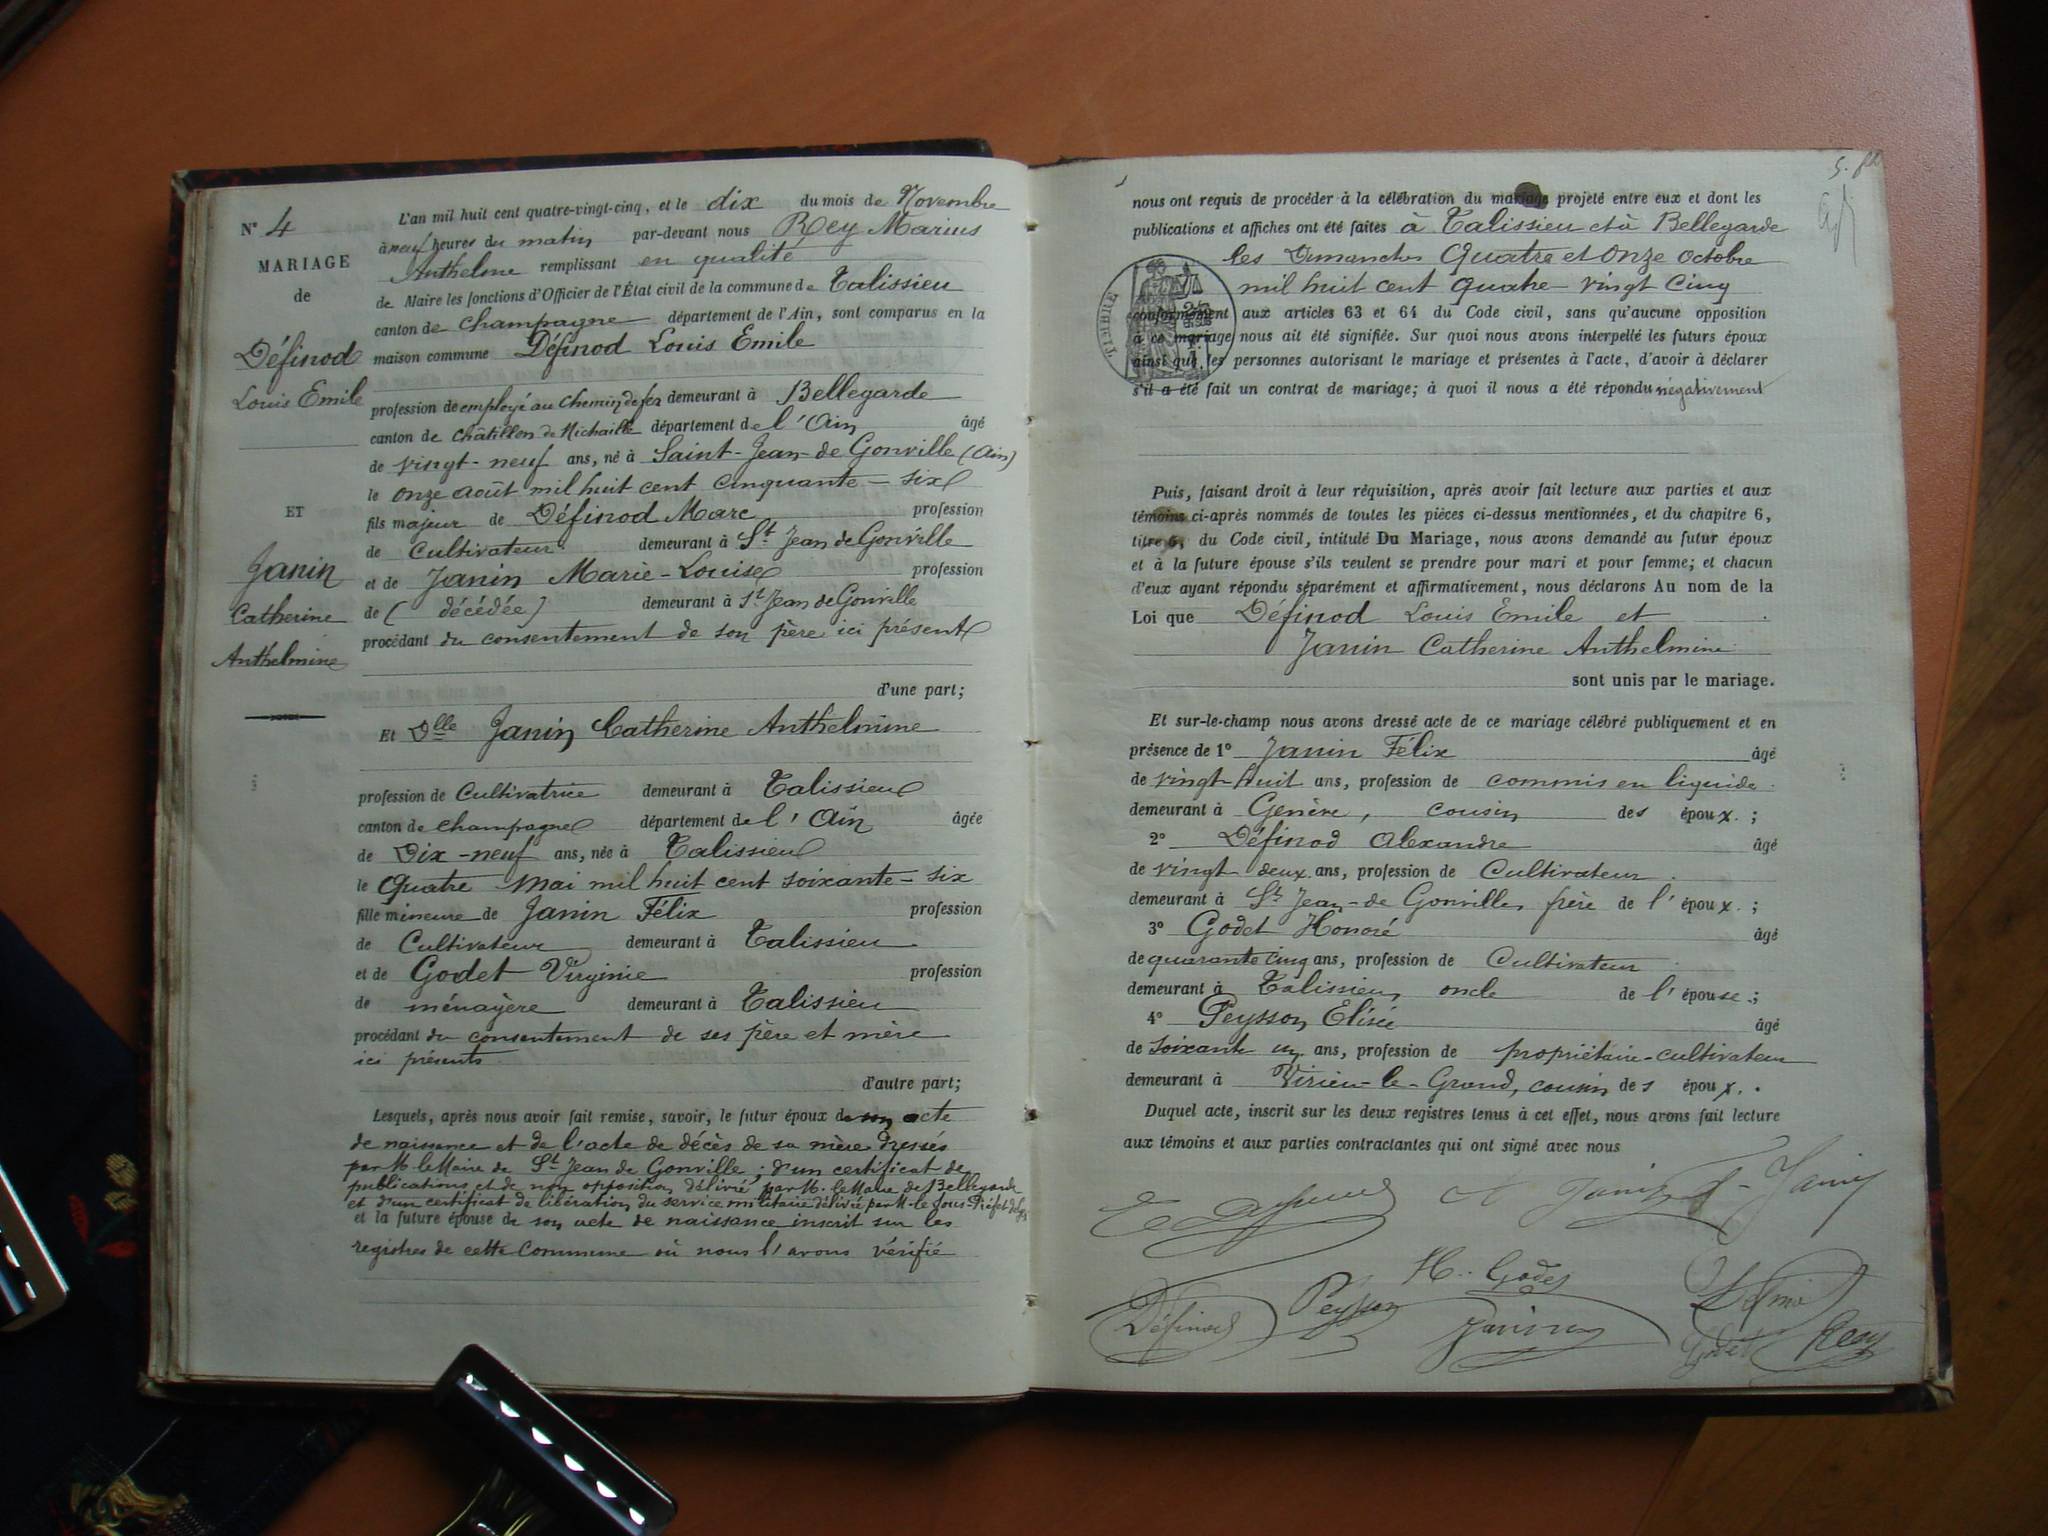 N° 4
MARIAGE
de
Définod
Louis Emile
ET
Janin
Catherine
Anthelmine
L'an mil huit cent quatre-vingt-cinq, et le dix du mois de Novembre
à neuf heures du matin par-devant nous Rey Marius
Anthelme remplissant en qualité
de Maire les fonctions d'Officier de l'État civil de la commune de Talissieu
canton de Champagne département de l'Ain, sont comparus en la
maison commune Définod Louis Emile
profession de employé au chemin de fer demeurant à Bellegarde
canton de Châtillon de Michaille département de l'Ain âgé
de vingt-neuf ans, né à Saint-Jean-de Gonville (Ain)
le onze août mil huit cent cinquante-six
fils majeur de Définod Marc profession
de Cultivateur demeurant à St Jean de Gonville
et de Janin Marie-Louise profession
de (décédée) demeurant à St Jean de Gonville
procédant du consentement de son père ici présent
d'une part;
Et Dlle Janin Catherine Anthelmine
profession de Cultivatrice demeurant à Talissieu
canton de Champagne département de l'Ain âgée
de Dix-neuf ans, née à Talissieu
le Quatre Mai mil huit cent soixante-six
fille mineure de Janin Félix profession
de Cultivateur demeurant à Talissieu
et de Godet Virginie profession
de ménagère demeurant à Talissieu
procédant du consentement de ses père et mère
ici présents
d'autre part;
Lesquels, après nous avoir fait remise, savoir, le futur époux de son acte
de naissance et de l'acte de décès de sa mère dressés
par M. le Maire de St Jean de Gonville; d'un certificat de
publications et de non opposition délivré par M. le Maire de Bellegarde
et d'un certificat de libération du service militaire délivré par M. le Sous-Préfet de
et la future épouse de son acte de naissance inscrit sur les
registres de cette Commune où nous l'avons vérifié
nous ont requis de procéder à la célébration du mariage projeté entre eux et dont les
publications et affiches ont été faites à Talissieu et à Bellegarde
les Dimanches Quatre et Onze octobre
mil huit cent quatre vingt Cinq
TIMBRE
conformément aux articles 63 et 64 du Code civil, sans qu'aucune opposition
à ce mariage nous ait été signifiée. Sur quoi nous avons interpellé les futurs époux
ainsi que les personnes autorisant le mariage et présentes à l'acte, d'avoir à déclarer
s'il a été fait un contrat de mariage; à quoi il nous a été répondu négativement
Puis, faisant droit à leur réquisition, après avoir fait lecture aux parties et aux
témoins ci-après nommés de toutes les pièces ci-dessus mentionnées, et du chapitre 6,
titre 5, du Code civil, intitulé Du Mariage, nous avons demandé au futur époux
et à la future épouse s'ils veulent se prendre pour mari et pour femme; et chacun
d'eux ayant répondu séparément et affirmativement, nous déclarons Au nom de la
Loi que Définod Louis Emile et
Janin Catherine Anthelmine
sont unis par le mariage.
Et sur-le-champ nous avons dressé acte de ce mariage célébré publiquement et en
présence de 1° Janin Félix âgé
de vingt-huit ans, profession de commis en liquide
demeurant à Genève, cousin des époux;
2° Définod Alexandre âgé
de vingt deux ans, profession de Cultivateur
demeurant à St Jean-de Gonville, frère de l'époux;
3° Godet Honoré âgé
de quarante cinq ans, profession de Cultivateur
demeurant à Talissieu, oncle de l'épouse;
4° Peysson Elisée âgé
de soixante un ans, profession de propriétaire-cultivateur
demeurant à Virieu-le-Grand, cousin des époux.
Duquel acte, inscrit sur les deux registres tenus à cet effet, nous avons fait lecture
aux témoins et aux parties contractantes qui ont signé avec nous
Janin F. Janin
H. Godet
Définod Peysson Janin
Godet Rey